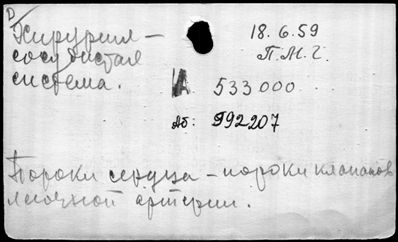 D
Хирургия –
сосудистая
система.
18.6.59
П.М.Г.
533000
Аб: 992207
Пороки сердца – пороки клапанов
легочной артерии.